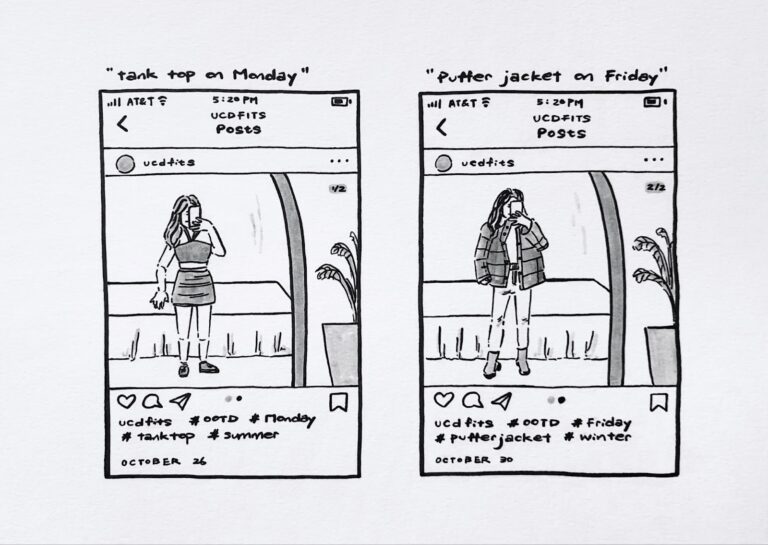 "tank top on Monday"
AT&T 5:20PM
UCDFITS
Posts
ucdfits
1/2
ucdfits #OOTD #Monday
#tanktop #summer
OCTOBER 26
"Puffer jacket on Friday"
AT&T 5:20PM
UCDFITS
Posts
ucdfits
2/2
ucdfits #OOTD #Friday
#Pufferjacket #winter
OCTOBER 30